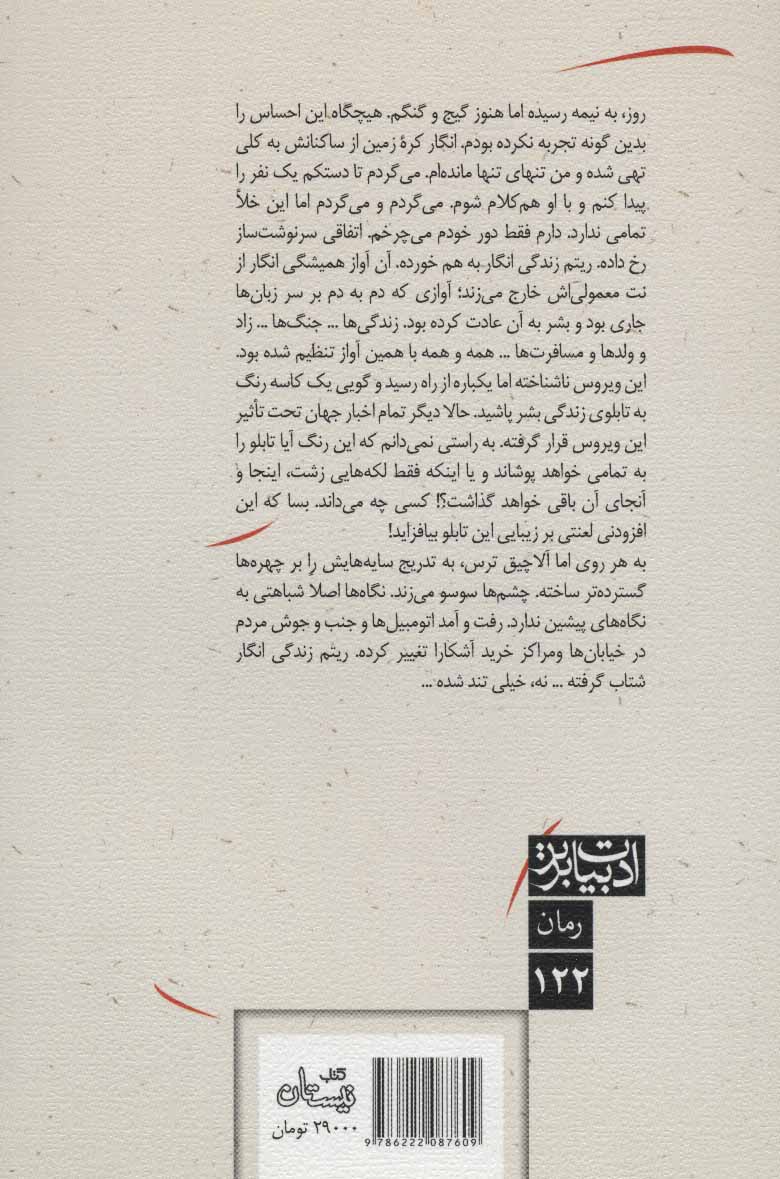 روز، به نیمه رسیده اما هنوز گیج و گنگم. هیچگاه این احساس را
بدین گونه تجربه نکرده بودم. انگار کرهٔ زمین از ساکنانش به کلی
تهی شده و من تنهای تنها مانده‌ام. می‌گردم تا دستکم یک نفر را
پیدا کنم و با او هم‌کلام شوم. می‌گردم و می‌گردم اما این خلأ
تمامی ندارد. دارم فقط دور خودم می‌چرخم. اتفاقی سرنوشت‌ساز
رخ داده. ریتم زندگی انگار به هم خورده. آن آواز همیشگی انگار از
نت معمولی‌اش خارج می‌زند؛ آوازی که دم به دم بر سر زبان‌ها
جاری بود و بشر به آن عادت کرده بود. زندگی‌ها ... جنگ‌ها ... زاد
و ولدها و مسافرت‌ها ... همه و همه با همین آواز تنظیم شده بود.
این ویروس ناشناخته اما یکباره از راه رسید و گویی یک کاسه رنگ
به تابلوی زندگی بشر پاشید. حالا دیگر تمام اخبار جهان تحت تأثیر
این ویروس قرار گرفته. به راستی نمی‌دانم که این رنگ آیا تابلو را
به تمامی خواهد پوشاند و یا اینکه فقط لکه‌هایی زشت، اینجا و
آنجای آن باقی خواهد گذاشت؟! کسی چه می‌داند. بسا که این
افزودنی لعنتی بر زیبایی این تابلو بیافزاید!
به هر روی اما آلاچیق ترس، به تدریج سایه‌هایش را بر چهره‌ها
گسترده‌تر ساخته. چشم‌ها سوسو می‌زند. نگاه‌ها اصلاً شباهتی به
نگاه‌های پیشین ندارد. رفت و آمد اتومبیل‌ها و جنب و جوش مردم
در خیابان‌ها ومراکز خرید آشکارا تغییر کرده. ریتم زندگی انگار
شتاب گرفته ... نه، خیلی تند شده ...
ادبیات برتر
رمان
۱۲۲
کتاب
نیستان
۲۹۰۰۰ تومان
9 786222 087609